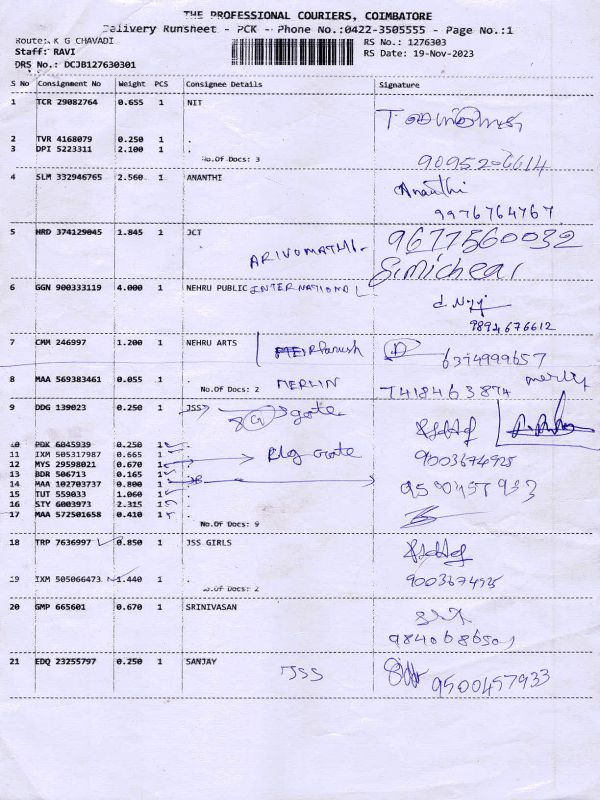 THE PROFESSIONAL COURIERS, COIMBATORE
Delivery Runsheet - PCK - Phone No.:0422-3505555 - Page No.:1
Route: K G CHAVADI
Staff: RAVI
DRS No.: DCJB127630301
RS No.: 1276303
RS Date: 19-Nov-2023
S No Consignment No Weight PCS Consignee Details Signature
1 TCR 29082764 0.655 1 NIT
2 TVR 4168079 0.250 1 .
3 DPI 5223311 2.100 1 .
No.Of Docs: 3
9095206614
4 SLM 332946765 2.560 1 ANANTHI
Ananthi
9976764767
5 HRD 374129045 1.845 1 JCT
ARIVOMATHI.
9677560032
6 GGN 900333119 4.000 1 NEHRU PUBLIC INTERNATIONAL
9894676612
7 CMM 246997 1.200 1 NEHRU ARTS
6374999657
8 MAA 569383461 0.055 1 .
No.Of Docs: 2
MERLIN
7418463874
9 DDG 139023 0.250 1 JSS
gate
10 PDK 6045939 0.250 1
11 IXM 505317987 0.665 1
12 MYS 29598021 0.670 1
9003674925
13 BDR 506713 0.165 1
14 MAA 102703737 0.800 1
15 TUT 559033 1.060 1
16 STY 6003973 2.315 1
17 MAA 572501658 0.410 1
No.Of Docs: 9
18 TRP 7636997 0.850 1 JSS GIRLS
19 IXM 505066473 1.440 1 .
No.Of Docs: 2
9003674925
20 GMP 665601 0.670 1 SRINIVASAN
21 EDQ 23255797 0.250 1 SANJAY
JSS
9500457933